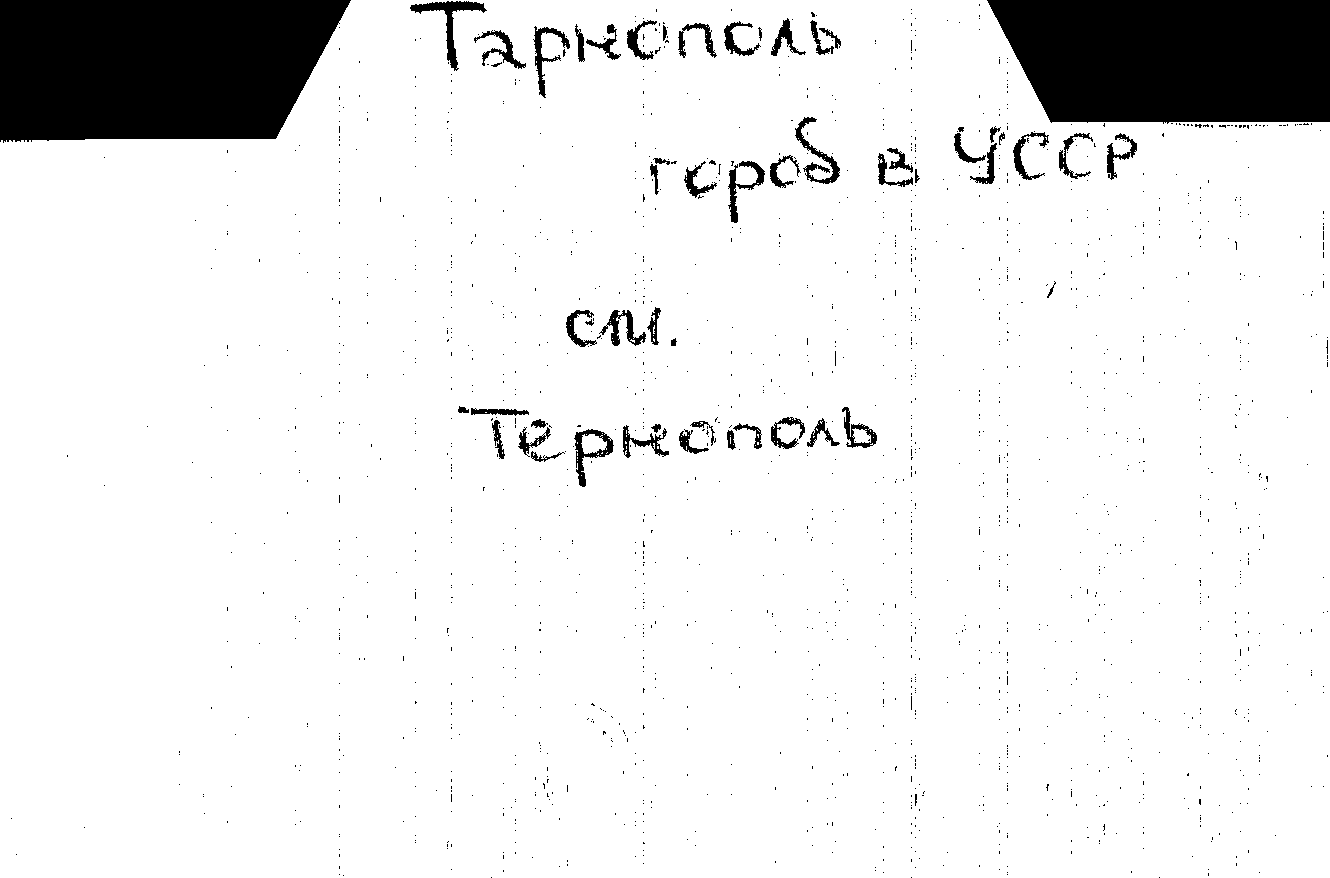 Тарнополь
город в УССР
см.
Тернополь